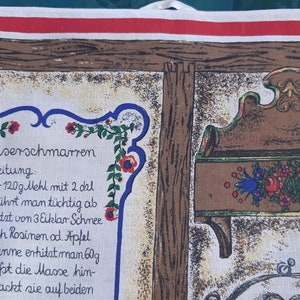 iserschmarren
eitung:
120g Mehl mit 2 dcl
ührt man tüchtig ab
dst von 3 Eiklar Schnee
h Rosinen od. Äpfel
anne erhitzt man 60g
fst die Masse hin-
ackt sie auf beiden